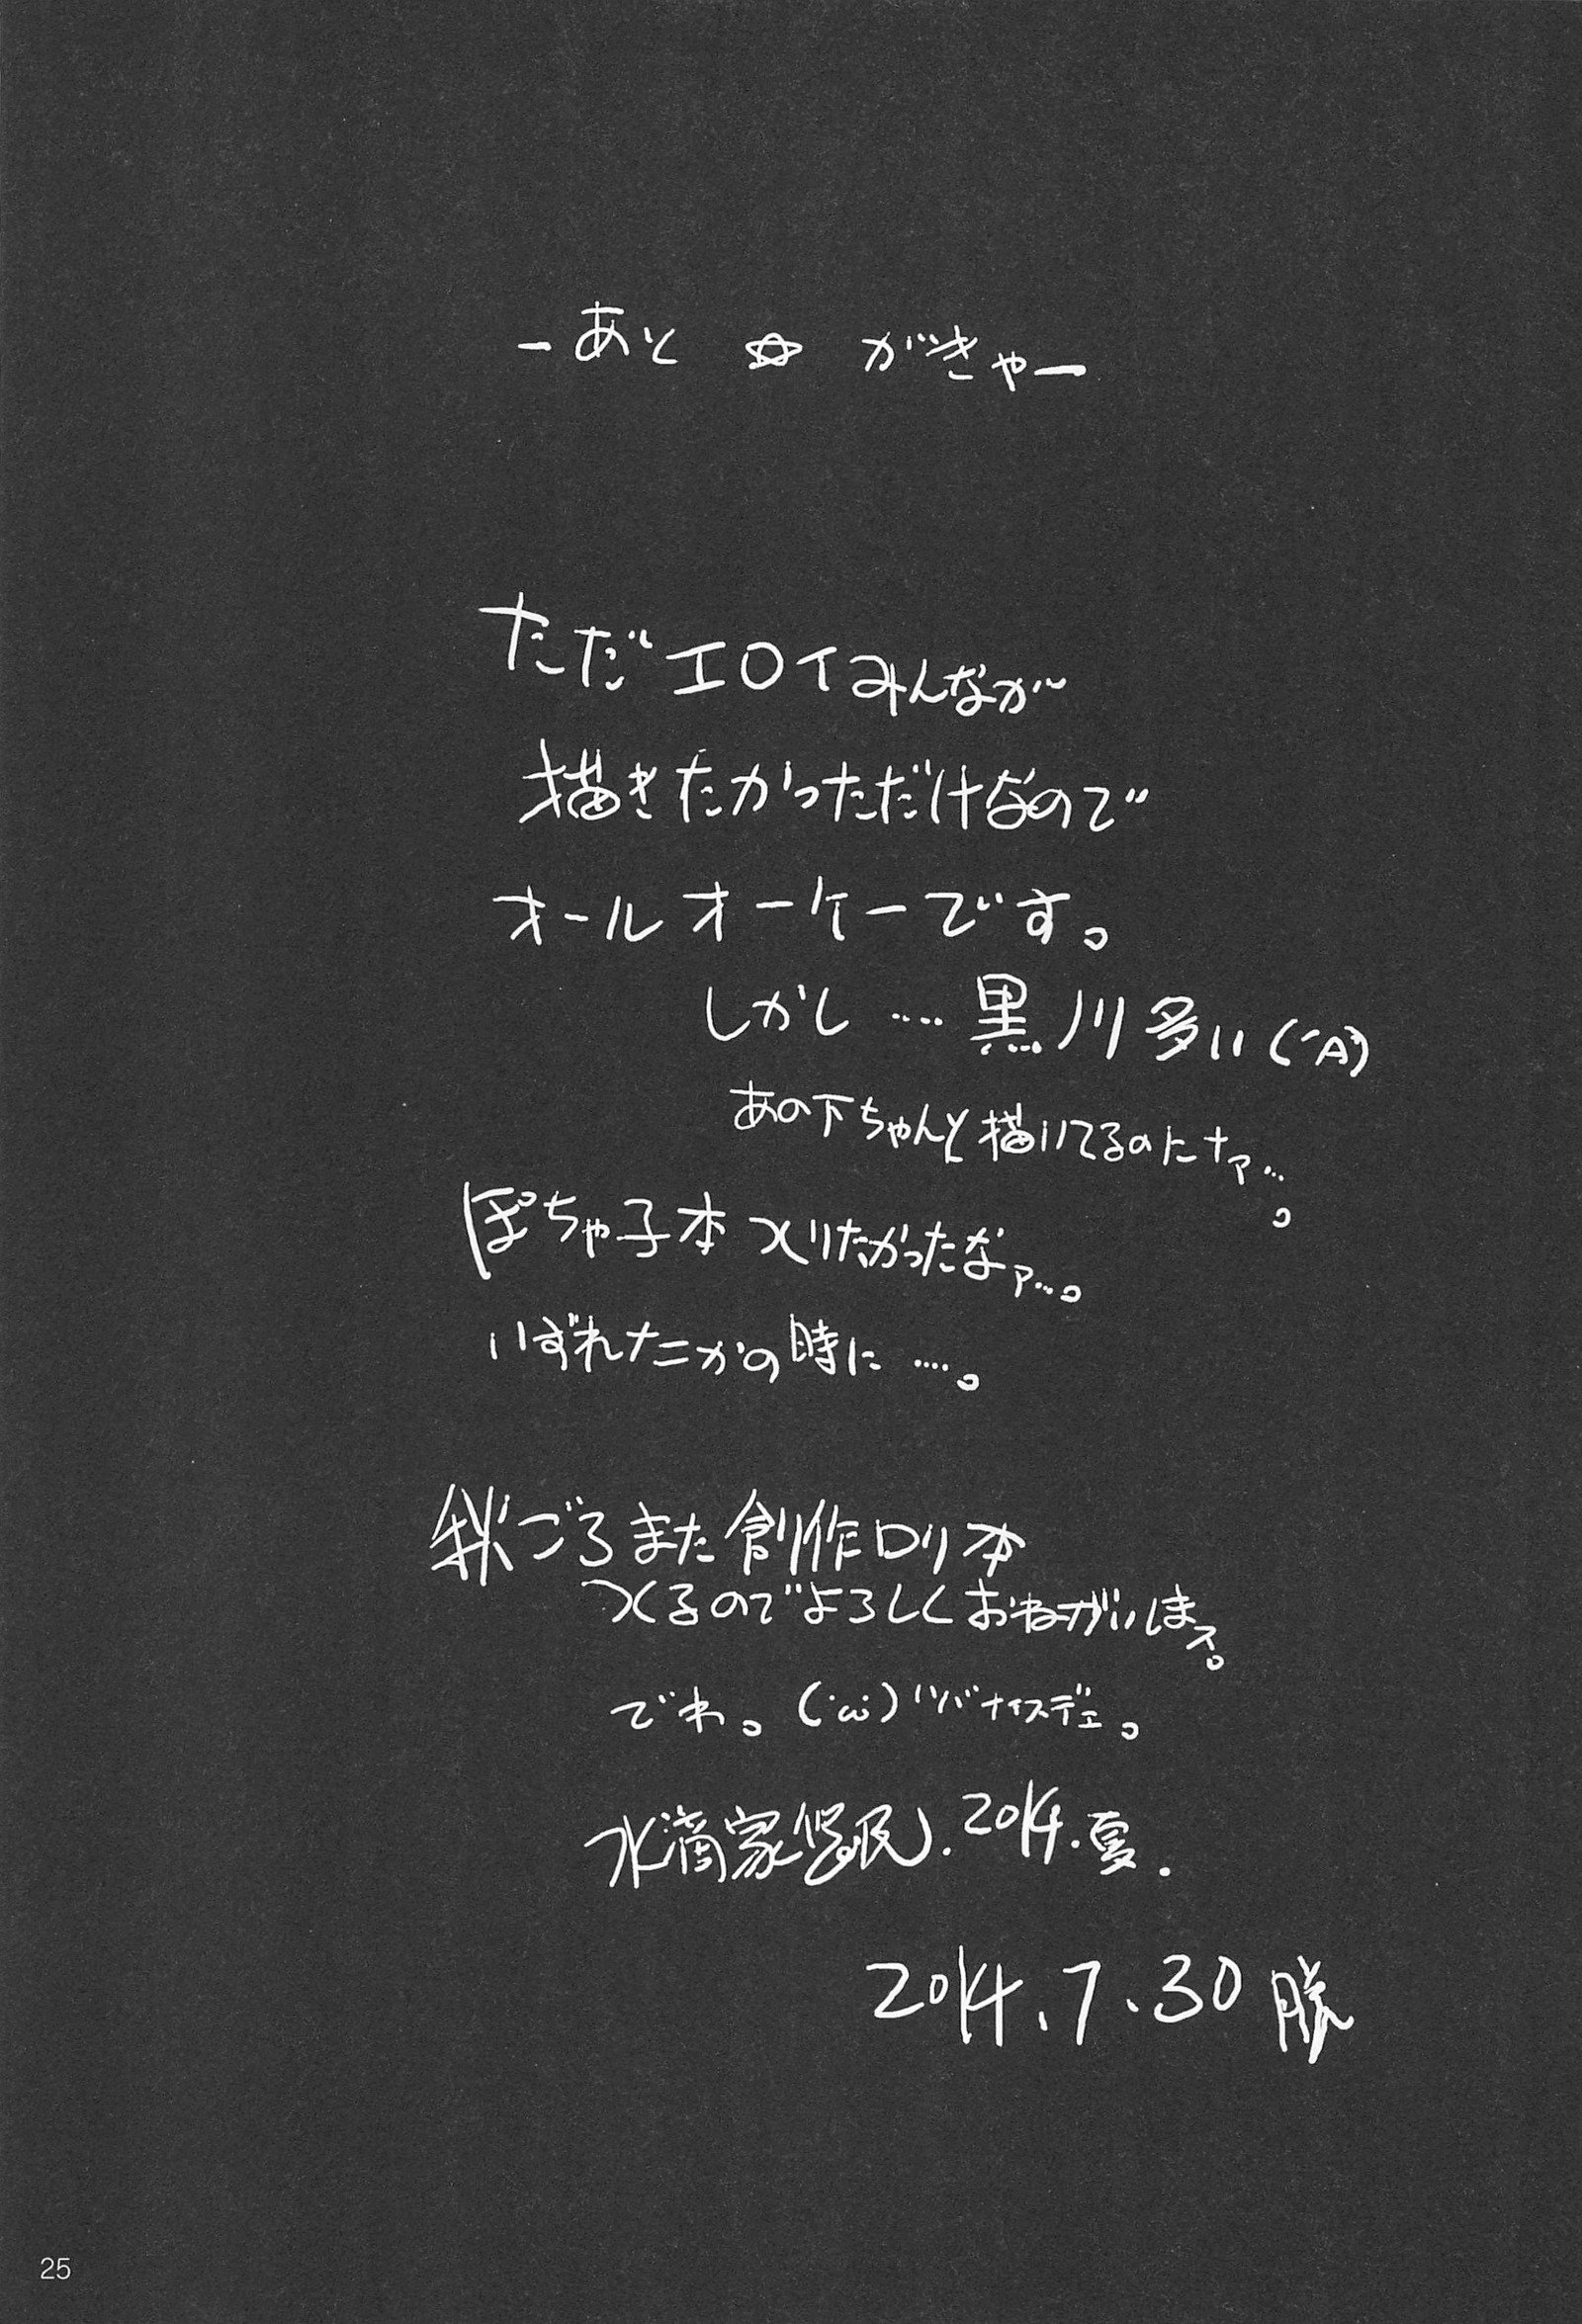 -あと ☆ がきゃー
ただエロイみんなが
描きたかっただけなので
オールオーケーです。
しかし…黒川多い(´A`)
あの下ちゃんと描いてるのにナァ…。
ぽちゃ子本つくりたかったなァ…。
いずれナニかの時に…。
秋ごろまた創作ロリ本
つくるのでよろしくおねがいしまス。
でわ。(・ω・)ノシバナイスデェ。
水滴家悠民. 2014.夏.
2014.7.30
25